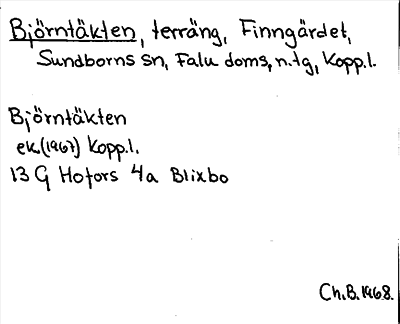 Björntäkten, terräng, Finngärdet,
Sundborns sn, Falu doms, n.tg, Kopp.l.
Björntäkten
ek.(1967) Kopp.l.
13 G Hofors 4a Blixbo
Ch.B.1968.